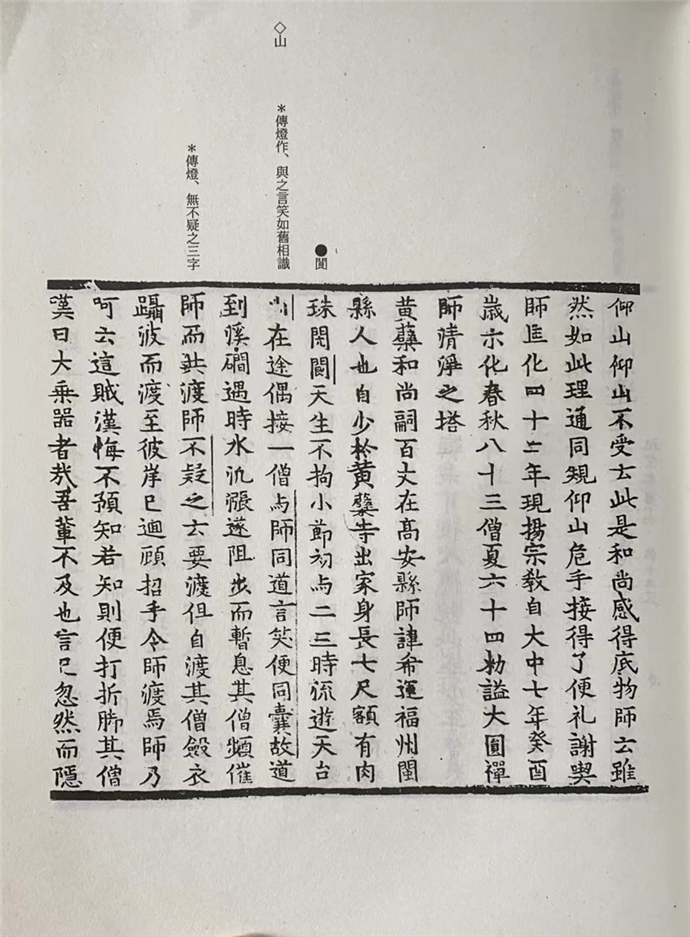 ◇山
＊傳燈作、與之言笑如舊相識
＊傳燈、無不疑之三字
●閡
仰山仰山不受云此是和尚感得底物師云雖
然如此理通同規仰山危手接得了便礼謝喫
師匡化四十二年現揚宗教自大中七年癸酉
歲示化春秋八十三僧夏六十四勑謚大圓禪
師清淨之塔
黃蘗和尚嗣百丈在高安縣師諱希運福州閩
縣人也自少於黃蘗寺出家身長七尺額有肉
珠閎閡天生不拘小節初与二三時流遊天台
在途偶接一僧与師同道言笑便同囊故道
到溪磵遇時水汎漲遂阻步而暫息其僧頻催
師而共渡師不疑之云要渡但自渡其僧斂衣
躡波而渡至彼岸已迴顧招手令師渡焉師乃
呵云這賊漢悔不預知若知則便打折脚其僧
嘆曰大乘器者哉吾輩不及也言已忽然而隱